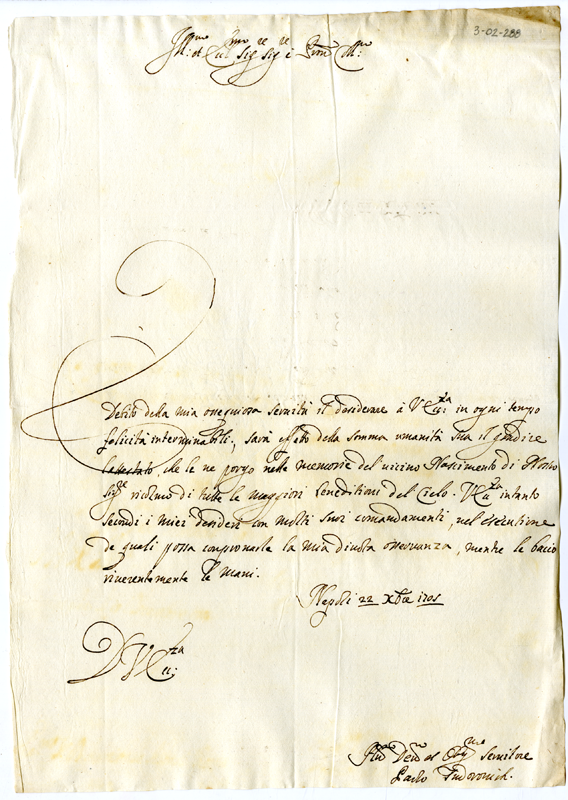 3-02-288
Ill:mo et Ecc:mo Sig:re Sig:re Pron Col:mo
Debito della mia ossequiosa servitù il desiderare à V.Ecc:za in ogni tempo
felicità interminabili, sarà effetto della somma umanità sua il gradire
l'attestato che le ne porgo nelle memorie del vicino Nascimento di Nostro
Sig:re ricolmo di tutte le maggiori beneditioni del Cielo. V.Ecc:za intanto
secondi i miei desiderij con molti suoi comandamenti, nel esecutione
de quali possa comprovarle la mia divota osservanza, mentre le bacio
riverentemente le mani.
Napoli 22 Xbre 1701
D V Ecc:za
Hu:mo Dev:mo et Obl:mo Servitore
Paolo